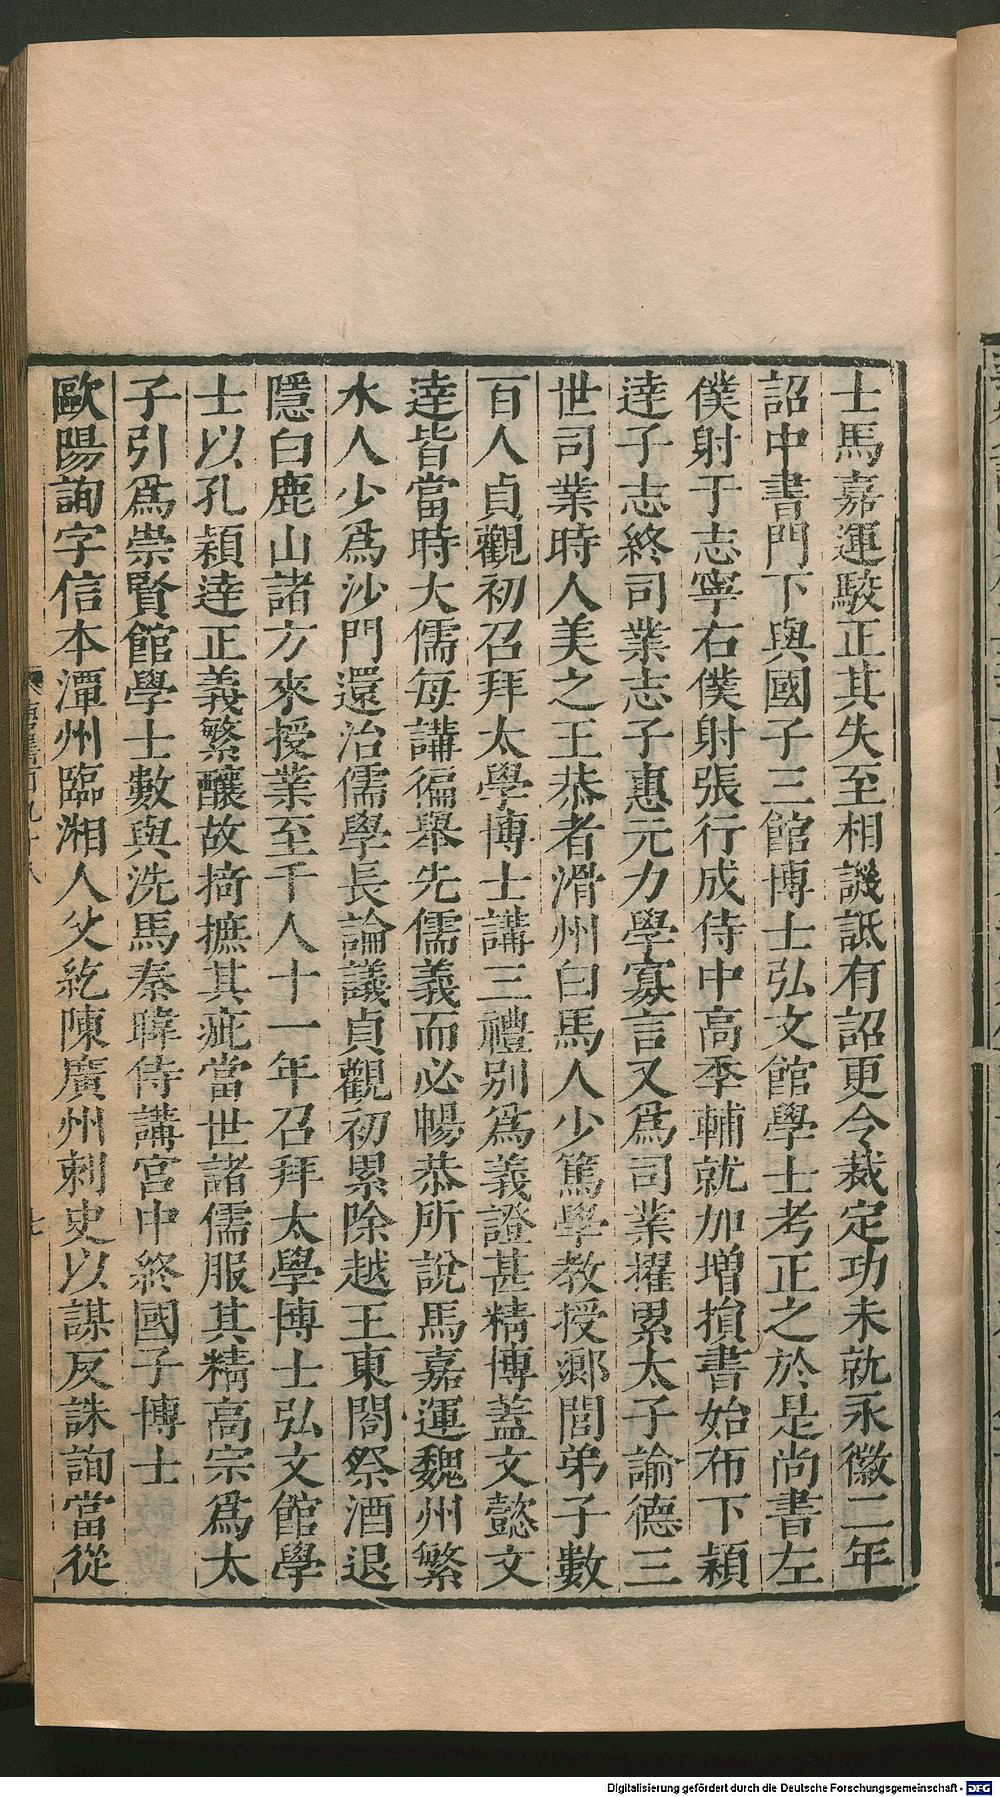 士馬嘉運駮正其失至相譏詆有詔更令裁定功未就永徽二年
詔中書門下與國子三館博士弘文館學士考正之於是尚書左
僕射于志寧右僕射張行成侍中高季輔就加增損書始布下穎
達子志終司業志子惠元力學寡言又爲司業擢累太子諭德三
世司業時人美之王恭者滑州白馬人少篤學教授鄉閭弟子數
百人貞觀初召拜太學博士講三禮別爲義證甚精博蓋文懿文
達皆當時大儒每講徧舉先儒義而必暢恭所說馬嘉運魏州繁
水人少爲沙門還治儒學長論議貞觀初累除越王東閤祭酒退
隱白鹿山諸方來授業至千人十一年召拜太學博士弘文館學
士以孔穎達正義繁釀故掎摭其疵當世諸儒服其精高宗爲太
子引爲崇賢館學士數與洗馬秦暐侍講宮中終國子博士
歐陽詢字信本潭州臨湘人父紇陳廣州刺史以謀反誅詢當從
七
Digitalisierung gefördert durch die Deutsche Forschungsgemeinschaft - DFG